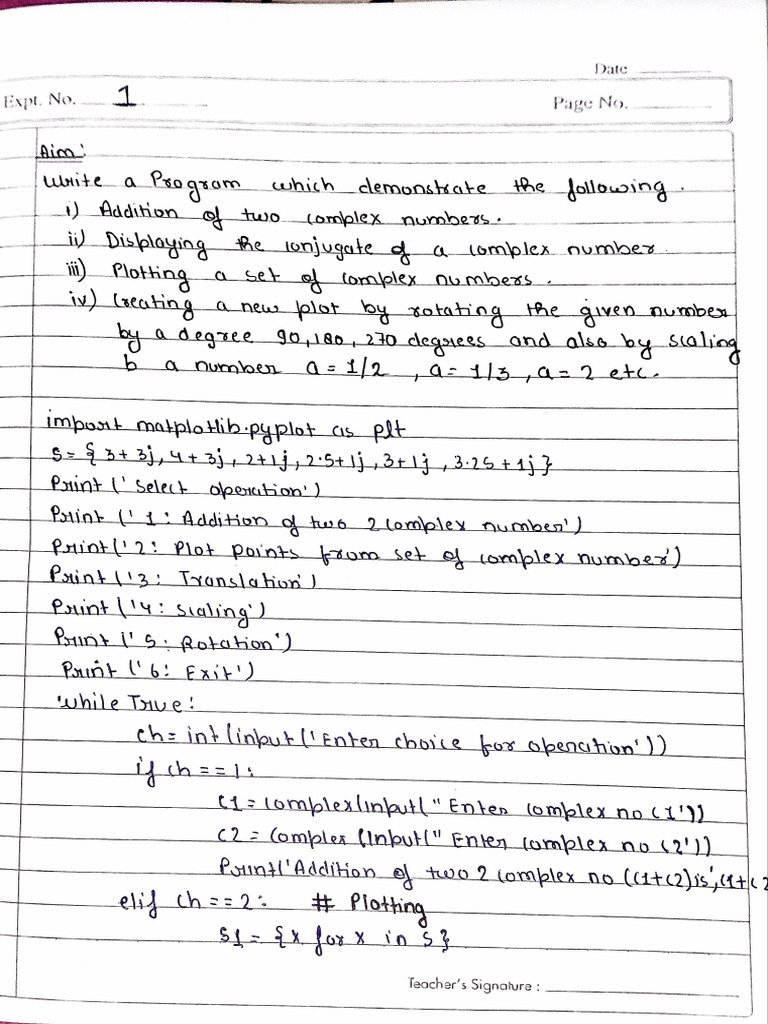 Date
Expt. No. 1
Page No.
Aim:
Write a Program which demonstrate the following.
i) Addition of two complex numbers.
ii) Displaying the conjugate of a complex number.
iii) Plotting a set of complex numbers.
iv) Creating a new plot by rotating the given number
by a degree 90, 180, 270 degrees and also by scaling
b a number a = 1/2 , a = 1/3 , a = 2 etc.
import matplotlib.pyplot as plt
S = { 3+3j, 4+3j, 2+1j, 2.5+1j, 3+1j, 3.25+1j}
Print ('Select operation')
Print ('1: Addition of two 2 complex number')
Print('2: Plot points from set of complex number')
Print ('3: Translation')
Print ('4: Scaling')
Print ('5: Rotation')
Print ('6: Exit')
while True:
ch = int (input ('Enter choice for operation'))
if ch == 1:
C1 = complex(input(" Enter complex no C1'))
C2 = Complex (input(" Enter complex no C2'))
Print('Addition of two 2 complex no (C1+C2)is',C1+C2
elif ch == 2: # Plotting
S1 = {x for x in S}
Teacher's Signature :